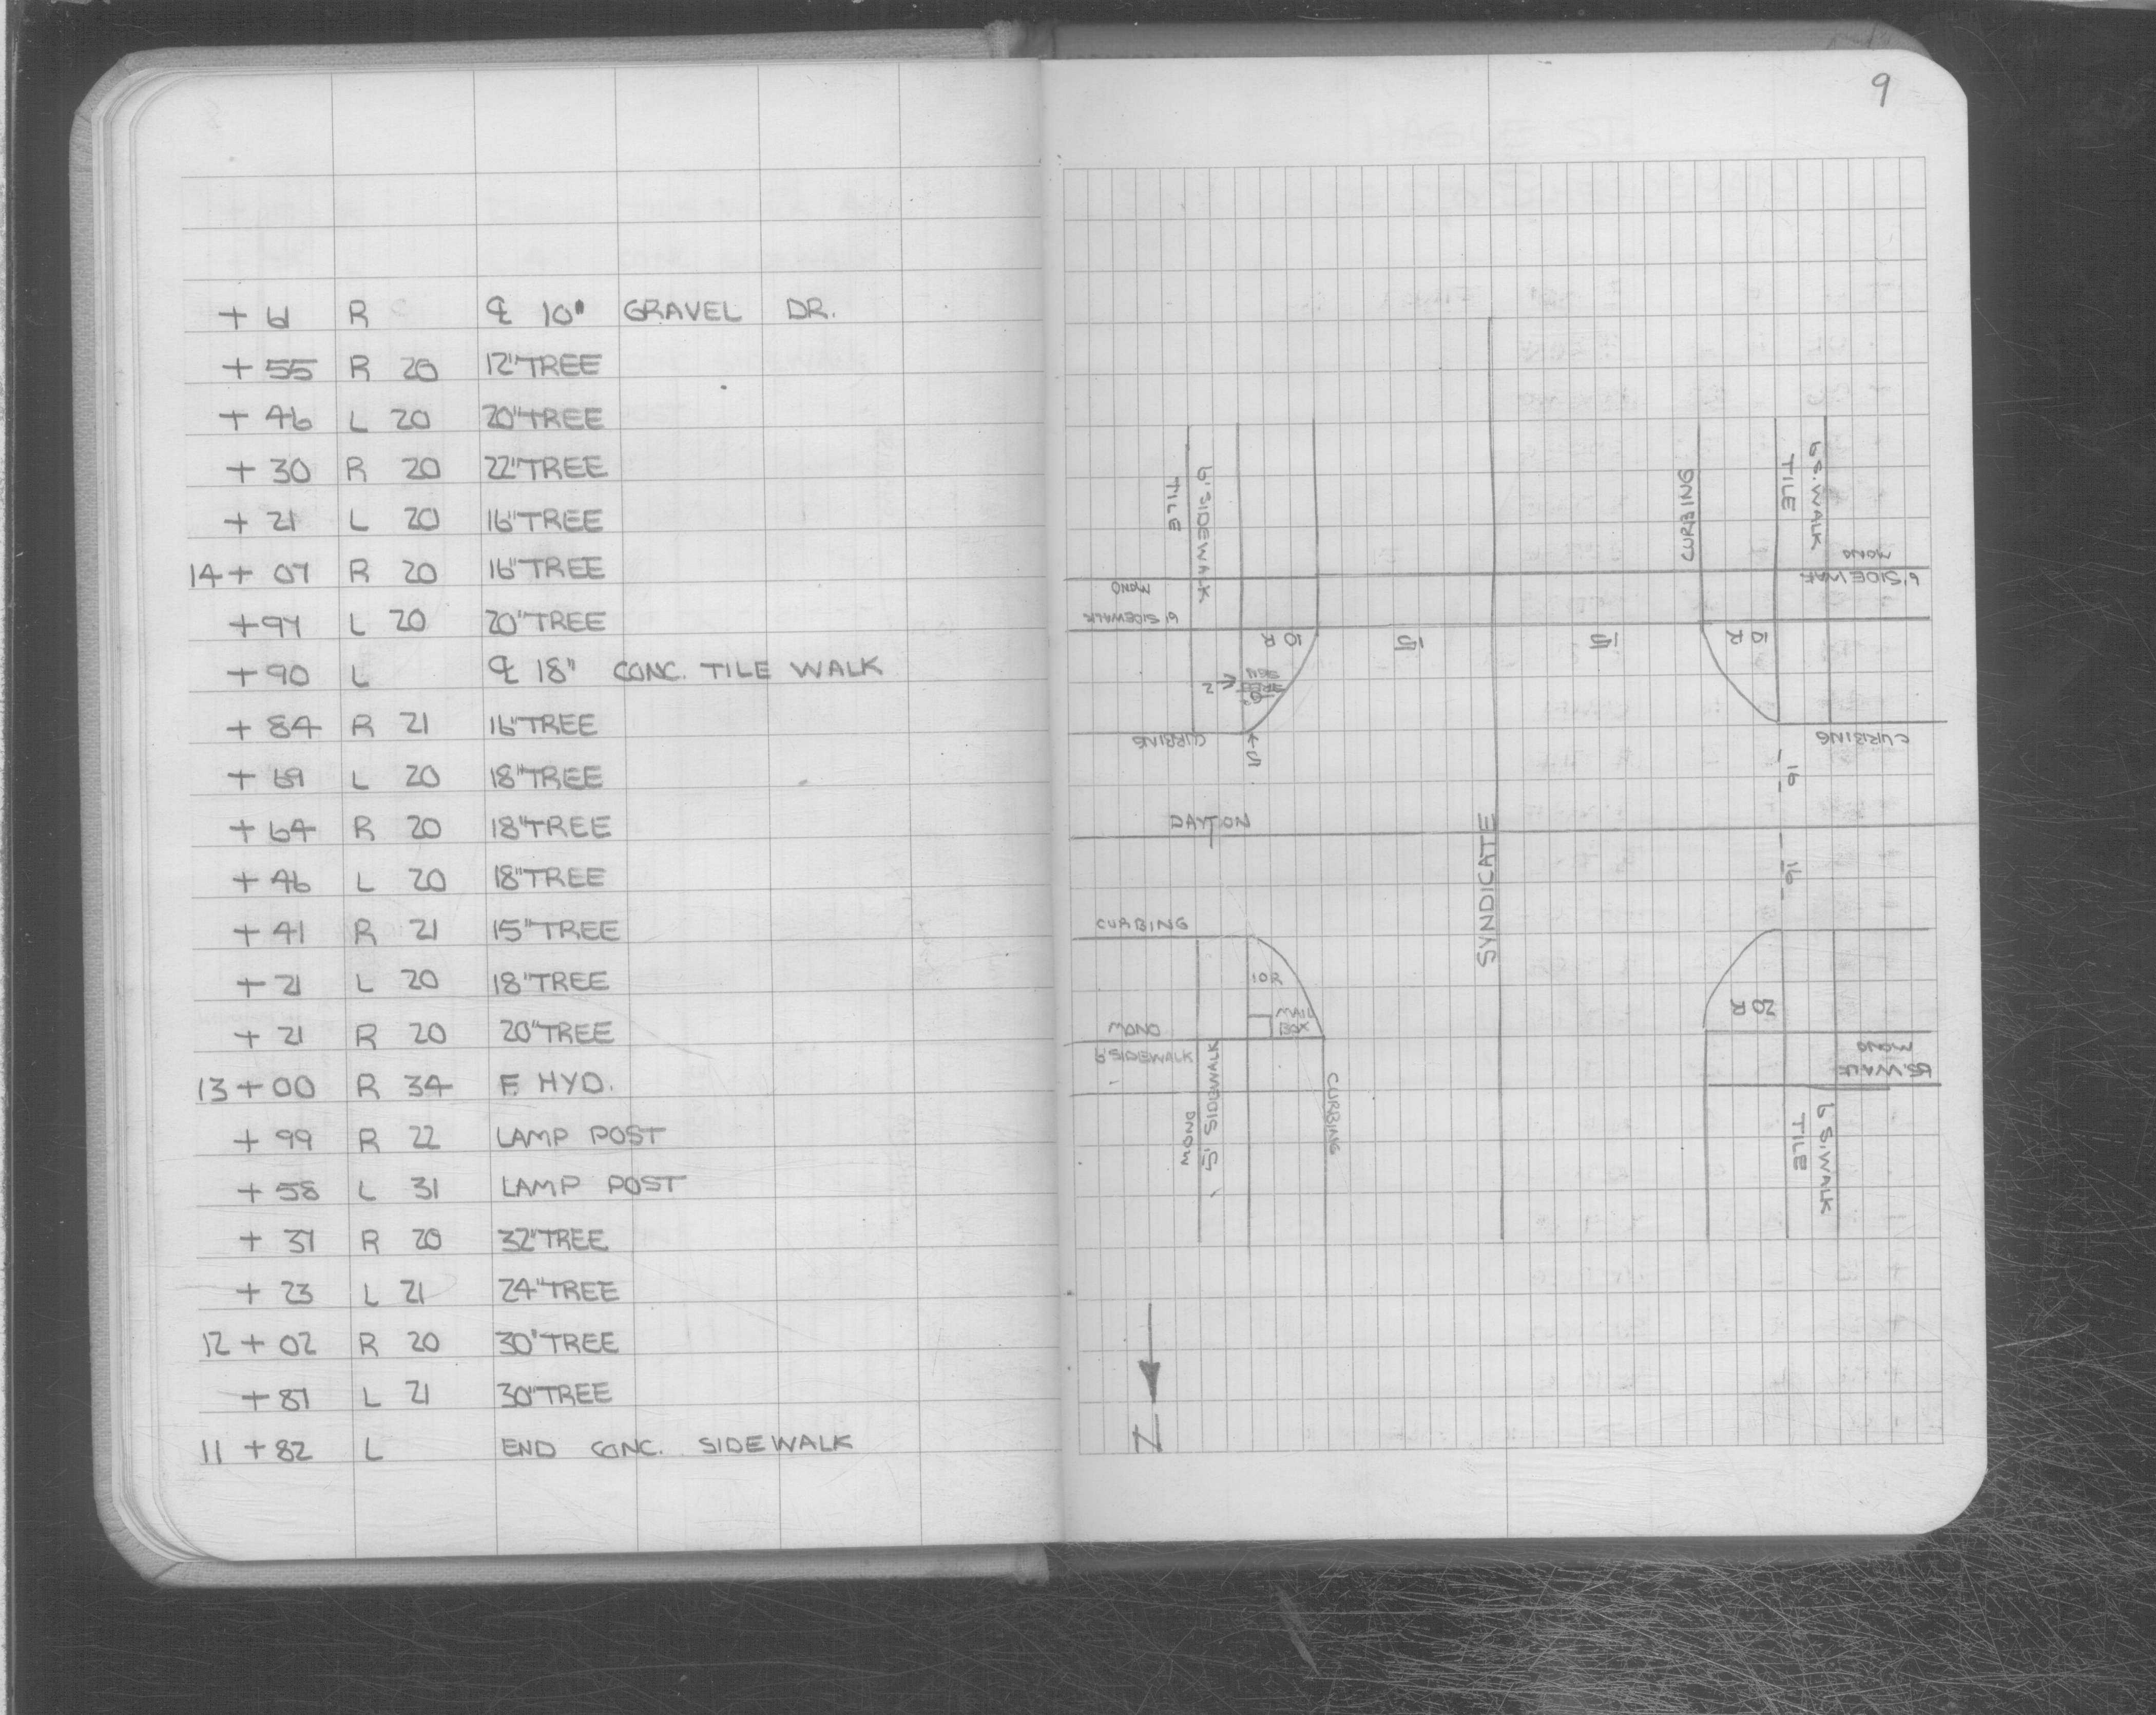 9
+ 61 R ℄ 10" GRAVEL DR.
+ 55 R 20 12"TREE
+ 46 L 20 20"TREE
+ 30 R 20 22"TREE
+ 21 L 20 16"TREE
14+ 07 R 20 16"TREE
+97 L 20 20"TREE
+90 L ℄ 18" CONC. TILE WALK
+ 84 R 21 16"TREE
+ 69 L 20 18"TREE
+ 64 R 20 18"TREE
+ 46 L 20 18"TREE
+ 41 R 21 15"TREE
+ 21 L 20 18"TREE
+ 21 R 20 20"TREE
13+00 R 34 F. HYD.
+ 99 R 22 LAMP POST
+ 58 L 31 LAMP POST
+ 37 R 20 32"TREE
+ 23 L 21 24"TREE
12 + 02 R 20 30"TREE
+81 L 21 30"TREE
11 +82 L END CONC. SIDEWALK
TILE
6' SIDEWALK
CURBING
TILE
6 S.WALK
MONO
6' SIDEWALK
MONO
6' SIDEWAK
10 R
15
15
10 R
2
SIGN
5
CURBING
CURBING
16
DAYTON
SYNDICATE
16
CURBING
10R
MAIL
BOX
20 R
MONO
6'SIDEWALK
MONO
5' SIDEWALK
CURBING
MONO
6S.WALK
TILE
6 S.WALK
N